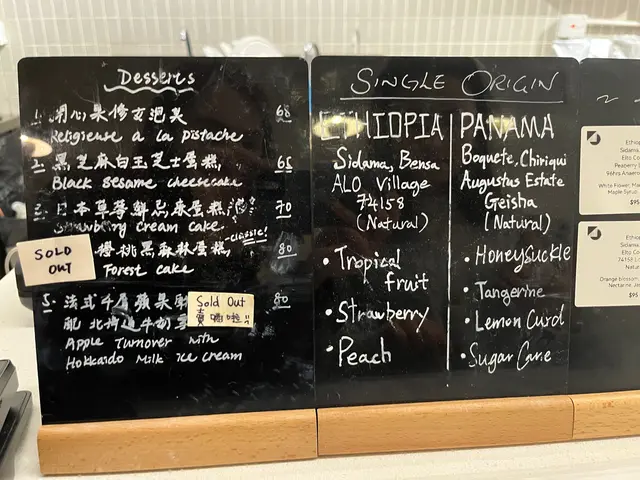 Desserts
1. 開心果修女泡芙 68
Religieuse a la pistache
2. 黑芝麻白玉芝士蛋糕 65
Black sesame cheesecake
3. 日本草莓鮮忌廉蛋糕 70
Strawberry cream cake
-classic!
SOLD OUT
櫻桃黑森林蛋糕 80
Forest cake
5. 法式千層蘋果 80
Sold Out
賣哂啦!!
配北海道牛奶
Apple Turnover with
Hokkaido Milk Ice cream
SINGLE ORIGIN
ETHIOPIA
Sidama, Bensa
ALO Village
74158
(Natural)
• Tropical
fruit
• Strawberry
• Peach
PANAMA
Boquete, Chiriqui
Augustus Estate
Geisha
(Natural)
• Honeysuckle
• Tangerine
• Lemon Curd
• Sugar Cane
Ethiop
Sidama
Elto Co
Peaberry
96hrs Anaero
White Flower, Ma
Maple Syrup
$95
Ethiop
Sidama
Elto Co
74158
Natu
Orange blossom
Nectarine, Ja
$95